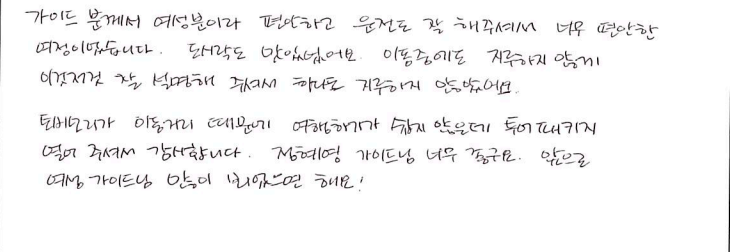 가이드 분께서 여성분이라 편안하고 운전도 잘 해주셔서 너무 편안한
여정이었습니다. 도시락도 맛있었어요. 이동중에도 지루하지 않게
이것저것 잘 설명해 주셔서 하나도 지루하지 않았어요.
토버모리가 이동거리 때문에 여행하기가 쉽지 않은데 투어패키지
열어 주셔서 감사합니다. 정혜영 가이드님 너무 좋구요. 앞으로
여성 가이드님 많이 뵈었으면 해요!